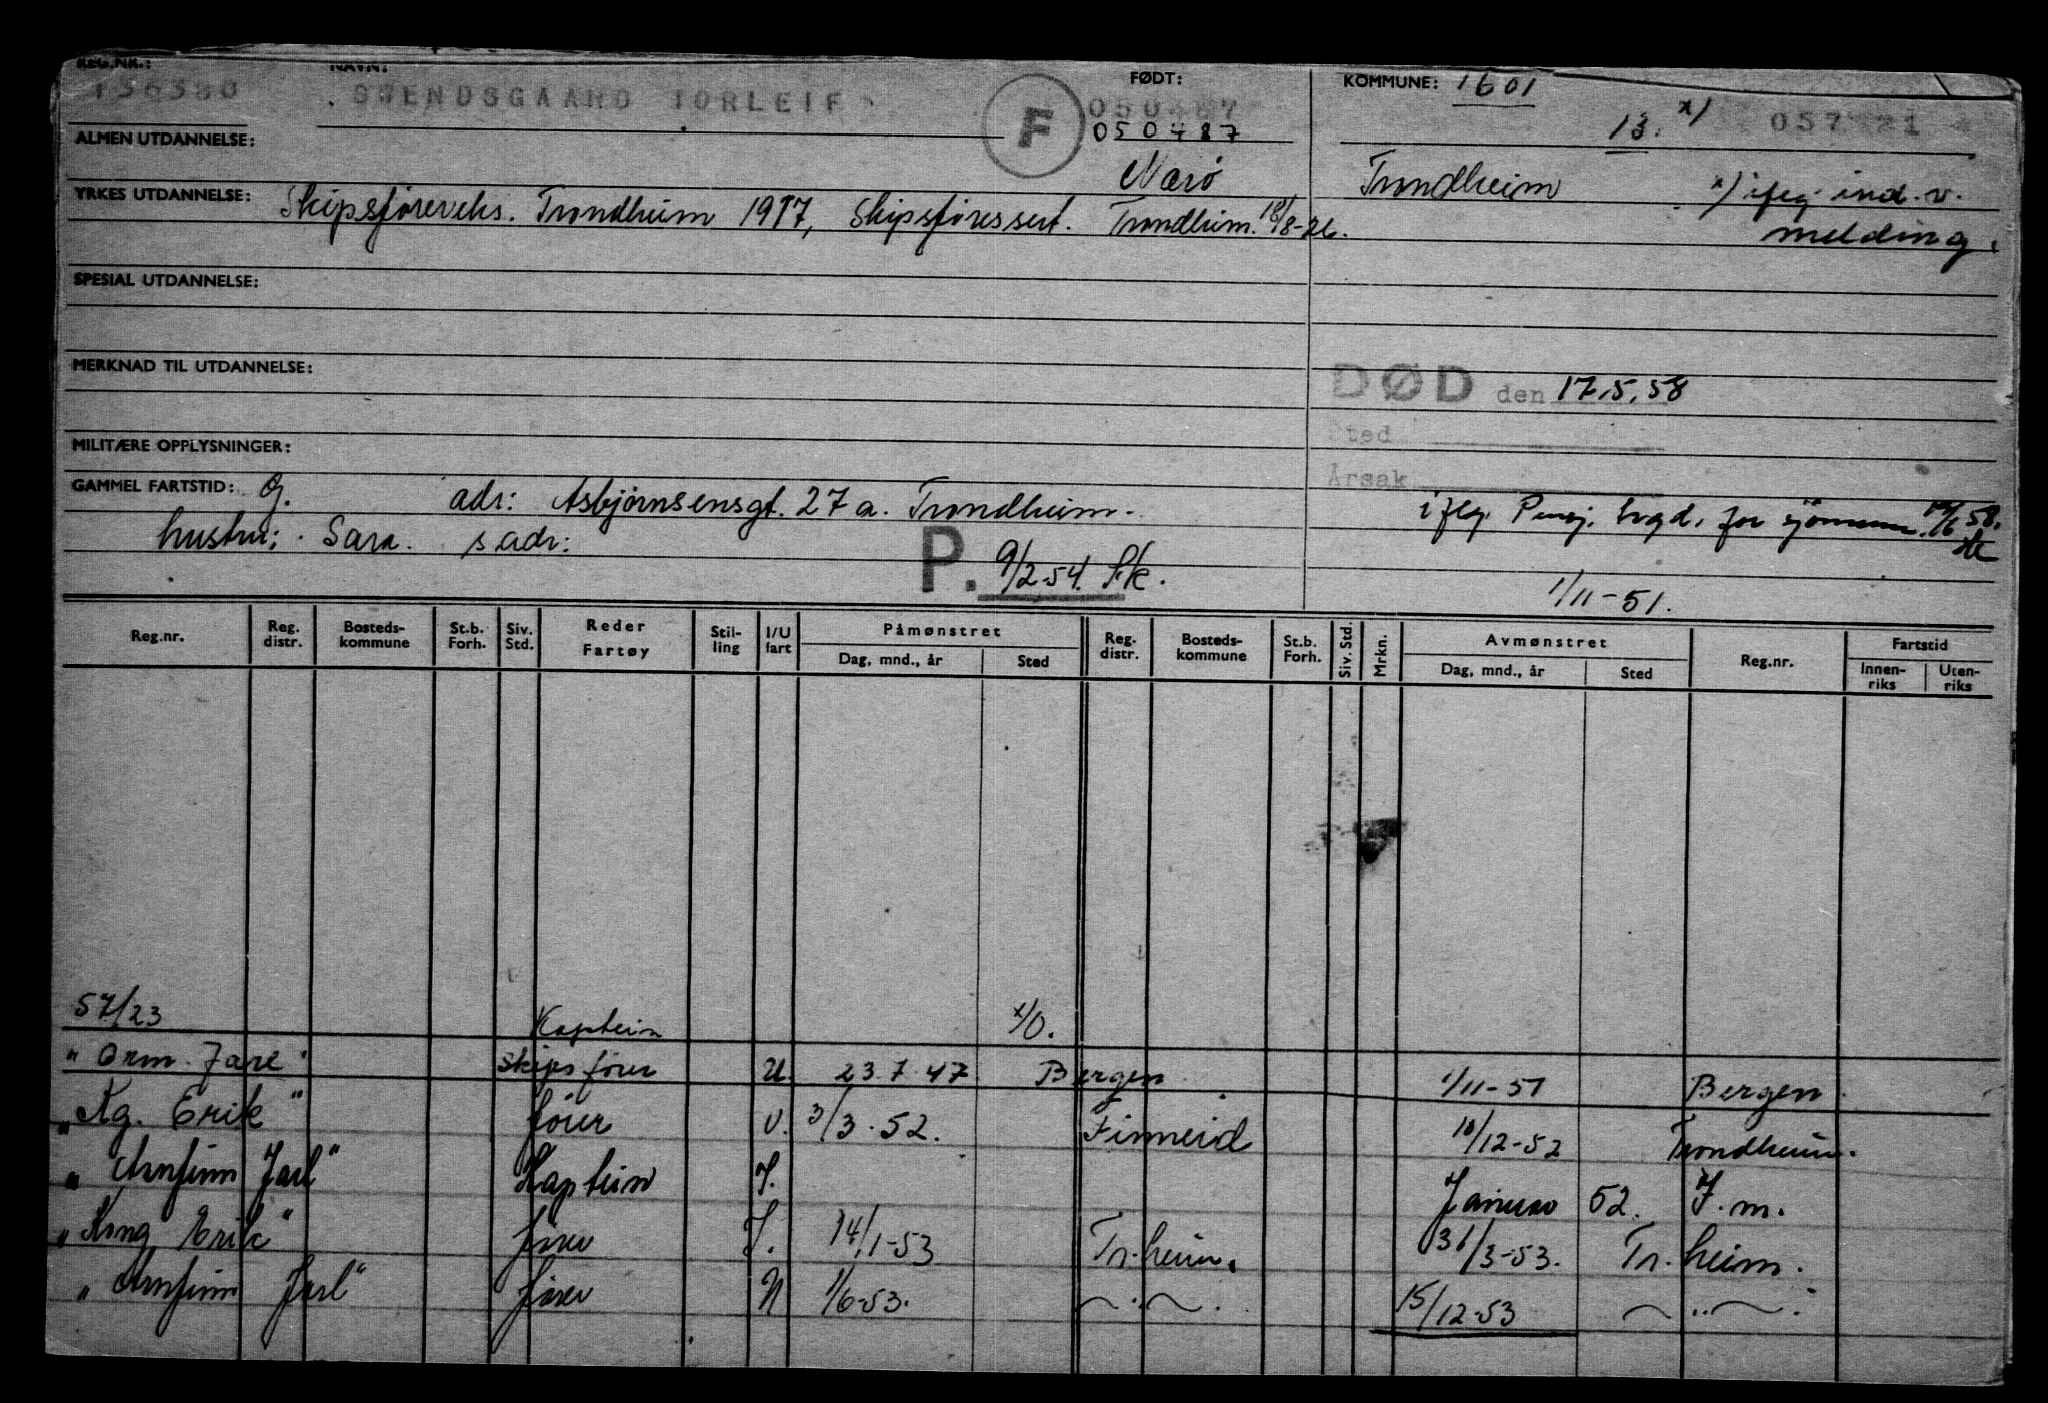 REG.NR.: NAVN: FØDT: KOMMUNE: 1601
136380 TORLEIF F 050487 13. x) 057
050487
ALMEN UTDANNELSE: Nærö Trondheim x) ifølg ind. v.
YRKES UTDANNELSE: Skipsförereks. Trondheim 1917, Skipsföressert. Trondheim. 18/8-26. melding.
SPESIAL UTDANNELSE:
MERKNAD TIL UTDANNELSE:
DØD den 17.5.58
Sted
Årsak
MILITÆRE OPPLYSNINGER:
GAMMEL FARTSTID: G. adr: Asbjörnsensgt. 27 a. Trondheim. iflg. Pensj. trygd. for sjömenn. 58.
hustru: Sara. s. adr:
P. 9/2-54. 1/11-51.
Reg.nr. Reg. distr. Bosteds-kommune St.b. Forh. Siv. Std. Reder Fartøy Stil-ling I/U fart Påmønstret Dag, mnd., år Sted Reg. distr. Bosteds-kommune St.b. Forh. Siv. Std. Mrkn. Avmønstret Dag, mnd., år Sted Reg.nr. Fartstid Innen-riks Uten-riks
57/23 Kaptein x/O.
" Orm Jarl " Skipsförer U 23.7.47 Bergen 1/11-51 Bergen
" Kg. Erik " förer U. 3/3.52. Finneid 10/12-52 Trondheim.
" Arnfinn Jarl " Kaptein I. Januar 52. I.m.
" Kong Erik " förer I. 14/1-53 Tr.heim. 31/3-53. Tr.heim.
" Arnfinn Jarl " förer U 1/6-53. 15/12-53